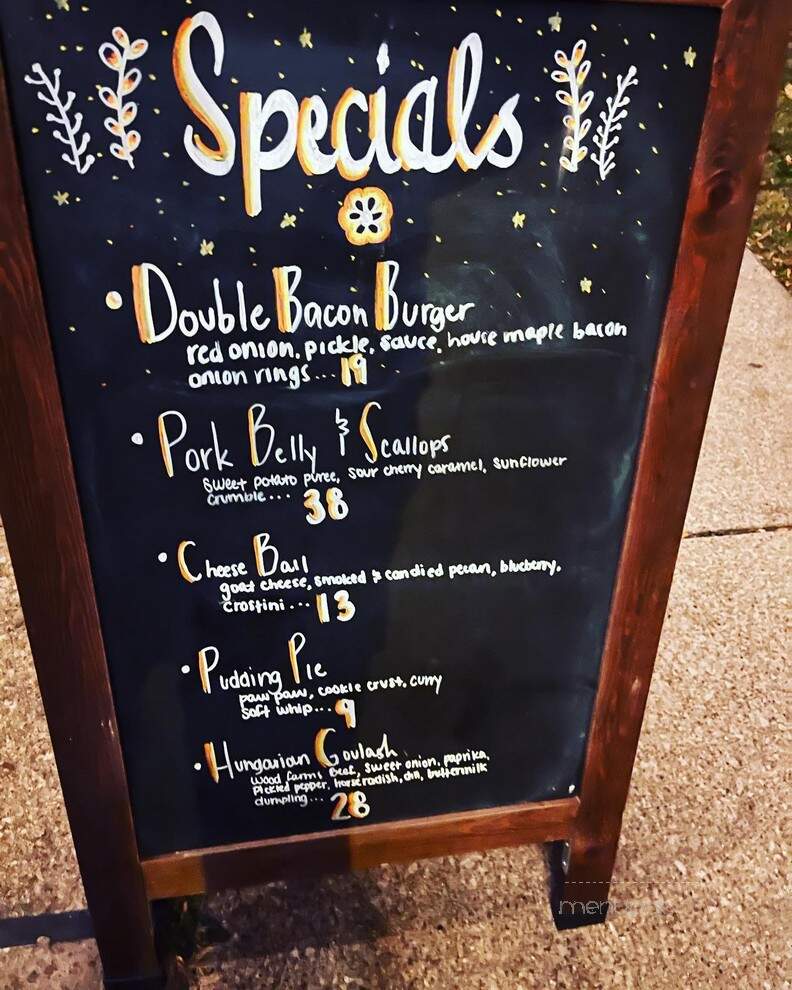 Specials
Double Bacon Burger
red onion, pickle, sauce, house maple bacon
onion rings... 19
Pork Belly & Scallops
sweet potato puree, sour cherry caramel, sunflower
crumble... 38
Cheese Ball
goat cheese, smoked & candied pecan, blueberry,
crostini... 13
Pudding Pie
paw paw, cookie crust, curry
soft whip... 9
Hungarian Goulash
wood farms beef, sweet onion, paprika,
pickled pepper, horseradish, dill, buttermilk
dumpling... 28